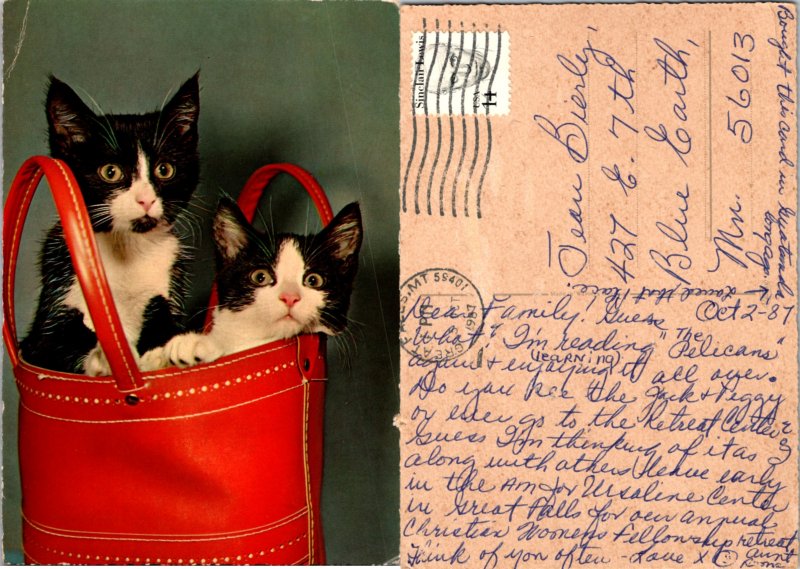 Sinclair Lewis
USA 14
GREAT FALLS, MT 59401
PM
1987
Jean Bierly,
427 E. 7th
Blue Earth,
Mn. 56013
Bought this card in Guatemala
long ago
Loved that place.
Oct 2-87
Dear Family: Guess
What? I'm reading "The Pelicans"
again & enjoying (learning) it all over.
Do you see the Jack & Peggy
or ever go to the Retreat Center? I
guess I'm thinking of it as I
along with others leave early
in the AM for Ursaline Center
in Great Falls for our annual
Christian Womens Fellowship retreat
Think of you often - Love x O aunt